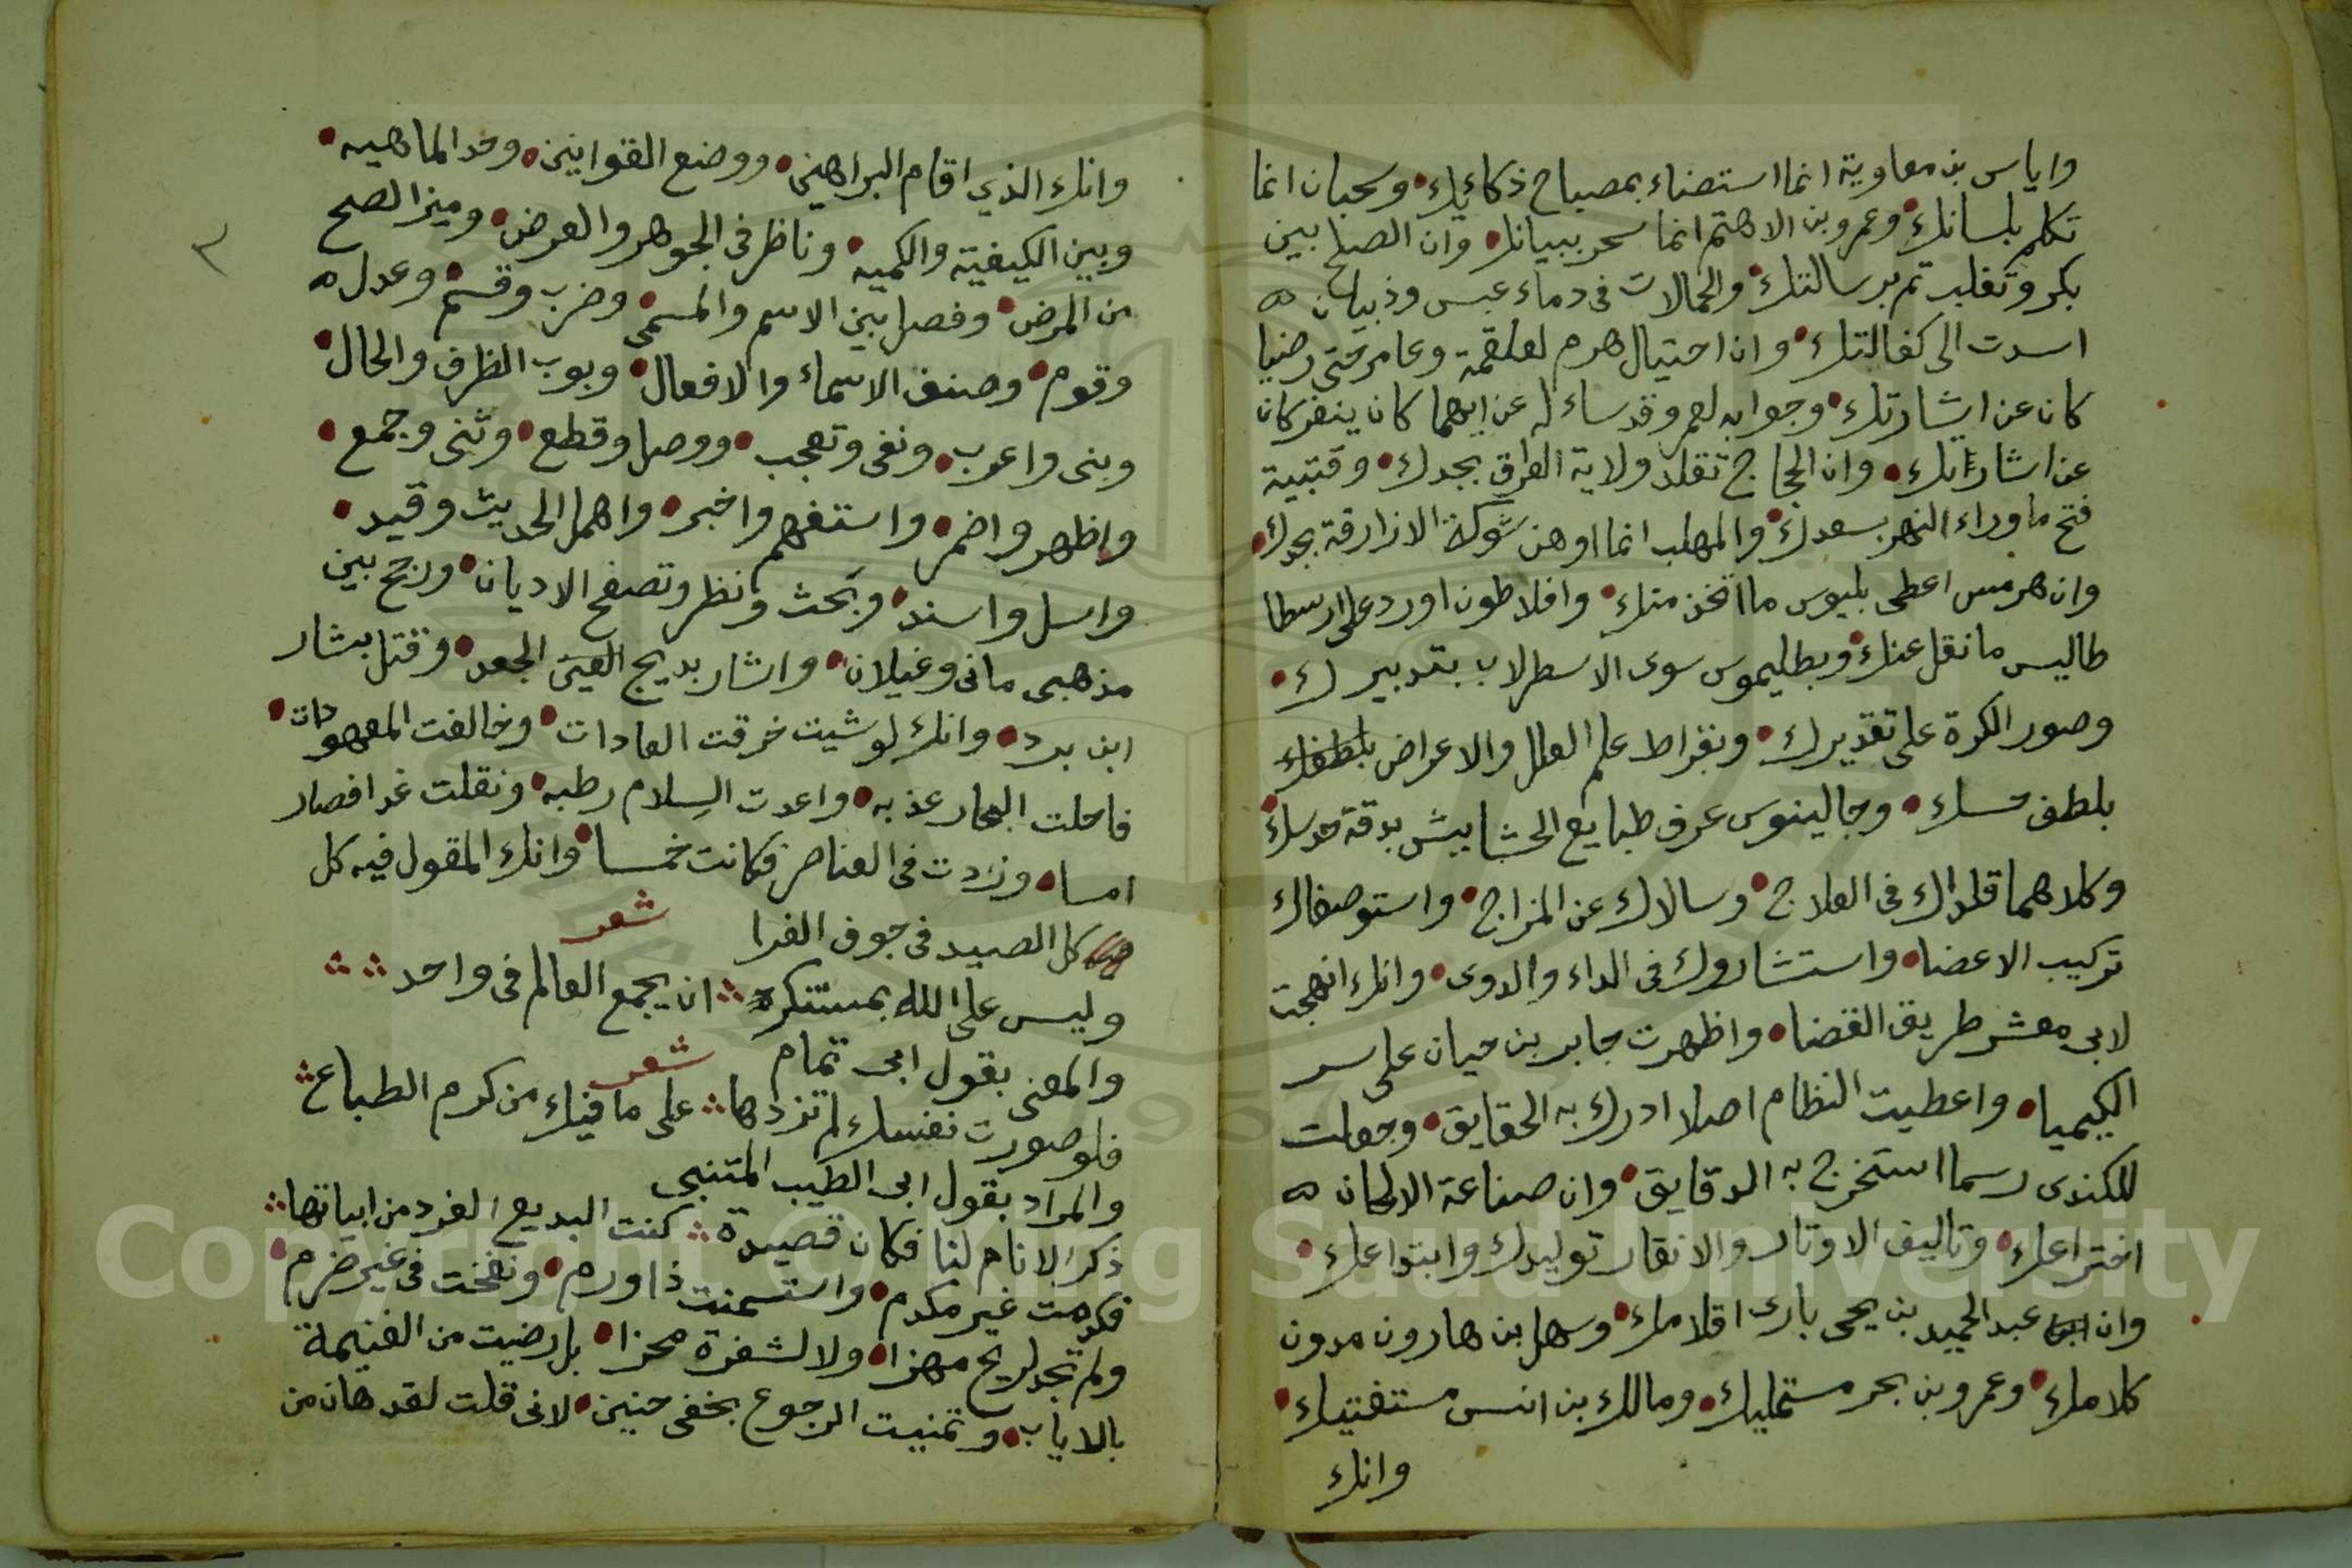 واياس بن معاوية انما استضاء بمصباح ذكائك وسحبان انما
تكلم بلسانك وعمرو بن الاهتم انما سحر ببيانك وان الصلح بين
بكر وتغلب تم برسالتك والحمالات في دماء عبس وذبيان
اسدت الى كفالتك وان احتيال هرم لعلقمة وعامر حتى رضيا
كان عن اشارتك وجوابه لعمر وقد ساءله عن ايهما كان ينفر كان
عن اشارتك وان الحجاج تقلد ولاية العراق بجدك وقتيبة
فتح ما وراء النهر بسعدك والمهلب انما اوهن شوكة الازارقة بجدك
وان هرمس اعطى بلينوس ما اتخن منك وافلاطون اورد على ارسطا
طاليس ما نقل عنك وبطليموس سوى الاسطرلاب بتدبيرك
وصور الكرة على تقديرك وبقراط علم العلل والاعراض
بلطف حسك وجالينوس عرف طبايع الحشايش بدقة حدسك
وكلاهما قلداك في العلاج وسالاك عن المزاج واستوصفاك
تركيب الاعضا واستشاروك في الداء والدوى وانك انهجت
لابي معشر طريق القضا واظهرت جابر بن حيان على سر
الكيميا واعطيت النظام اصلا ادرك به الحقايق وجعلت
للكندى رسما استخرج به الدقايق وان صناعة الالحان
اختراعك وتاليف الاوتار والانقار توليدك وابتداعك
وان عبد الحميد بن يحيى بارى اقلامك وسهل بن هارون مدون
كلامك وعمرو بن بحر مستمليك ومالك بن انس مستفتيك
وانك
٣
وانك الذي اقام البراهين ووضع القوانين وحد الماهيه
وبين الكيفية والكميه وناظر في الجوهر والعرض وميز الصح
من المرض وفصل بين الاسم والمسمى وضرب وقسم وعدل
وقوم وصنف الاسماء والافعال وبوب الظرف والحال
وبنى واعرب ونفى وتعجب ووصل وقطع وثنى وجمع
واظهر واضمر واستفهم واخبر واهمل الحديث وقيد
وارسل واسند وبحث ونظر وتصفح الاديان ورجح بين
مذهبى مانى وغيلان واشار بديح العين الجعد وقتل بشار
ابن برد وانك لو شيت خرقت العادات وخالفت المعهودات
فاحلت البحار عذبه واعدت السلام رطبه ونقلت غدا فصار
امسا وزدت في العناصر فكانت خمسا وانك المقول فيه كل
كل الصيد في جوف الفرا شعر
وليس على الله بمستنكر ان يجمع العالم في واحد
والمعنى بقول ابى تمام شعر
فلو صورت نفسك لم تزدها على ما فيك من كرم الطباع
والمراد بقول ابى الطيب المتنبى
ذكر الانام لنا فكان قصيدة كنت البديع الفرد من ابياتها
فكدمت غير مكدم واستسمنت ذا ورم ونفخت في غير ضرم
ولم تجد لريح مهزا ولا لشفرة محزا بل رضيت من الغنيمة
بالاياب وتمنيت الرجوع بخفى حنين لانى قلت لقد هان من
Copyright © King Saud University
1957